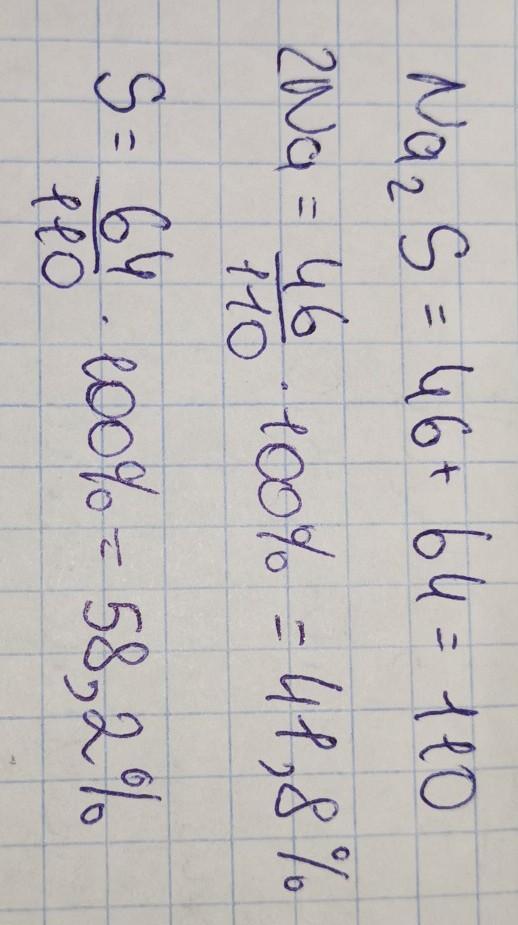 Na₂S = 46 + 64 = 110
2Na = 46/110 · 100% = 41,8%
S = 64/110 · 100% = 58,2%